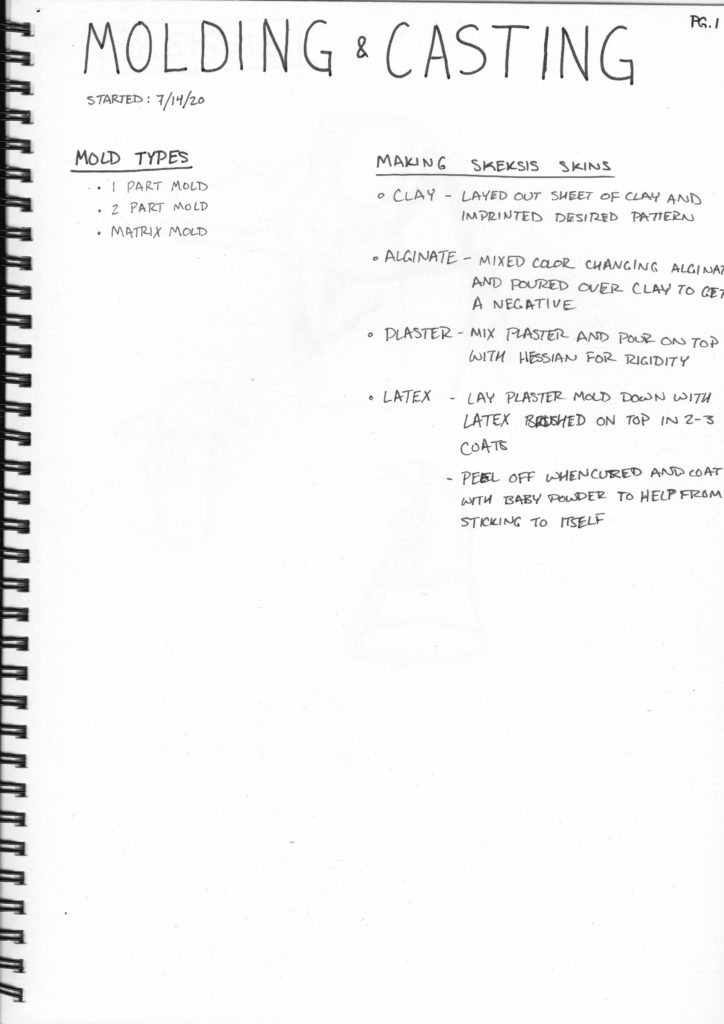 PG.1
MOLDING & CASTING
STARTED: 7/14/20
MOLD TYPES
• 1 PART MOLD
• 2 PART MOLD
• MATRIX MOLD
MAKING SKEKSIS SKINS
• CLAY - LAYED OUT SHEET OF CLAY AND
IMPRINTED DESIRED PATTERN
• ALGINATE - MIXED COLOR CHANGING ALGINAT
AND POURED OVER CLAY TO GET
A NEGATIVE
• PLASTER - MIX PLASTER AND POUR ON TOP
WITH HESSIAN FOR RIGIDITY
• LATEX - LAY PLASTER MOLD DOWN WITH
LATEX BRUSHED ON TOP IN 2-3
COATS
- PEEL OFF WHEN CURED AND COAT
WITH BABY POWDER TO HELP FROM
STICKING TO ITSELF